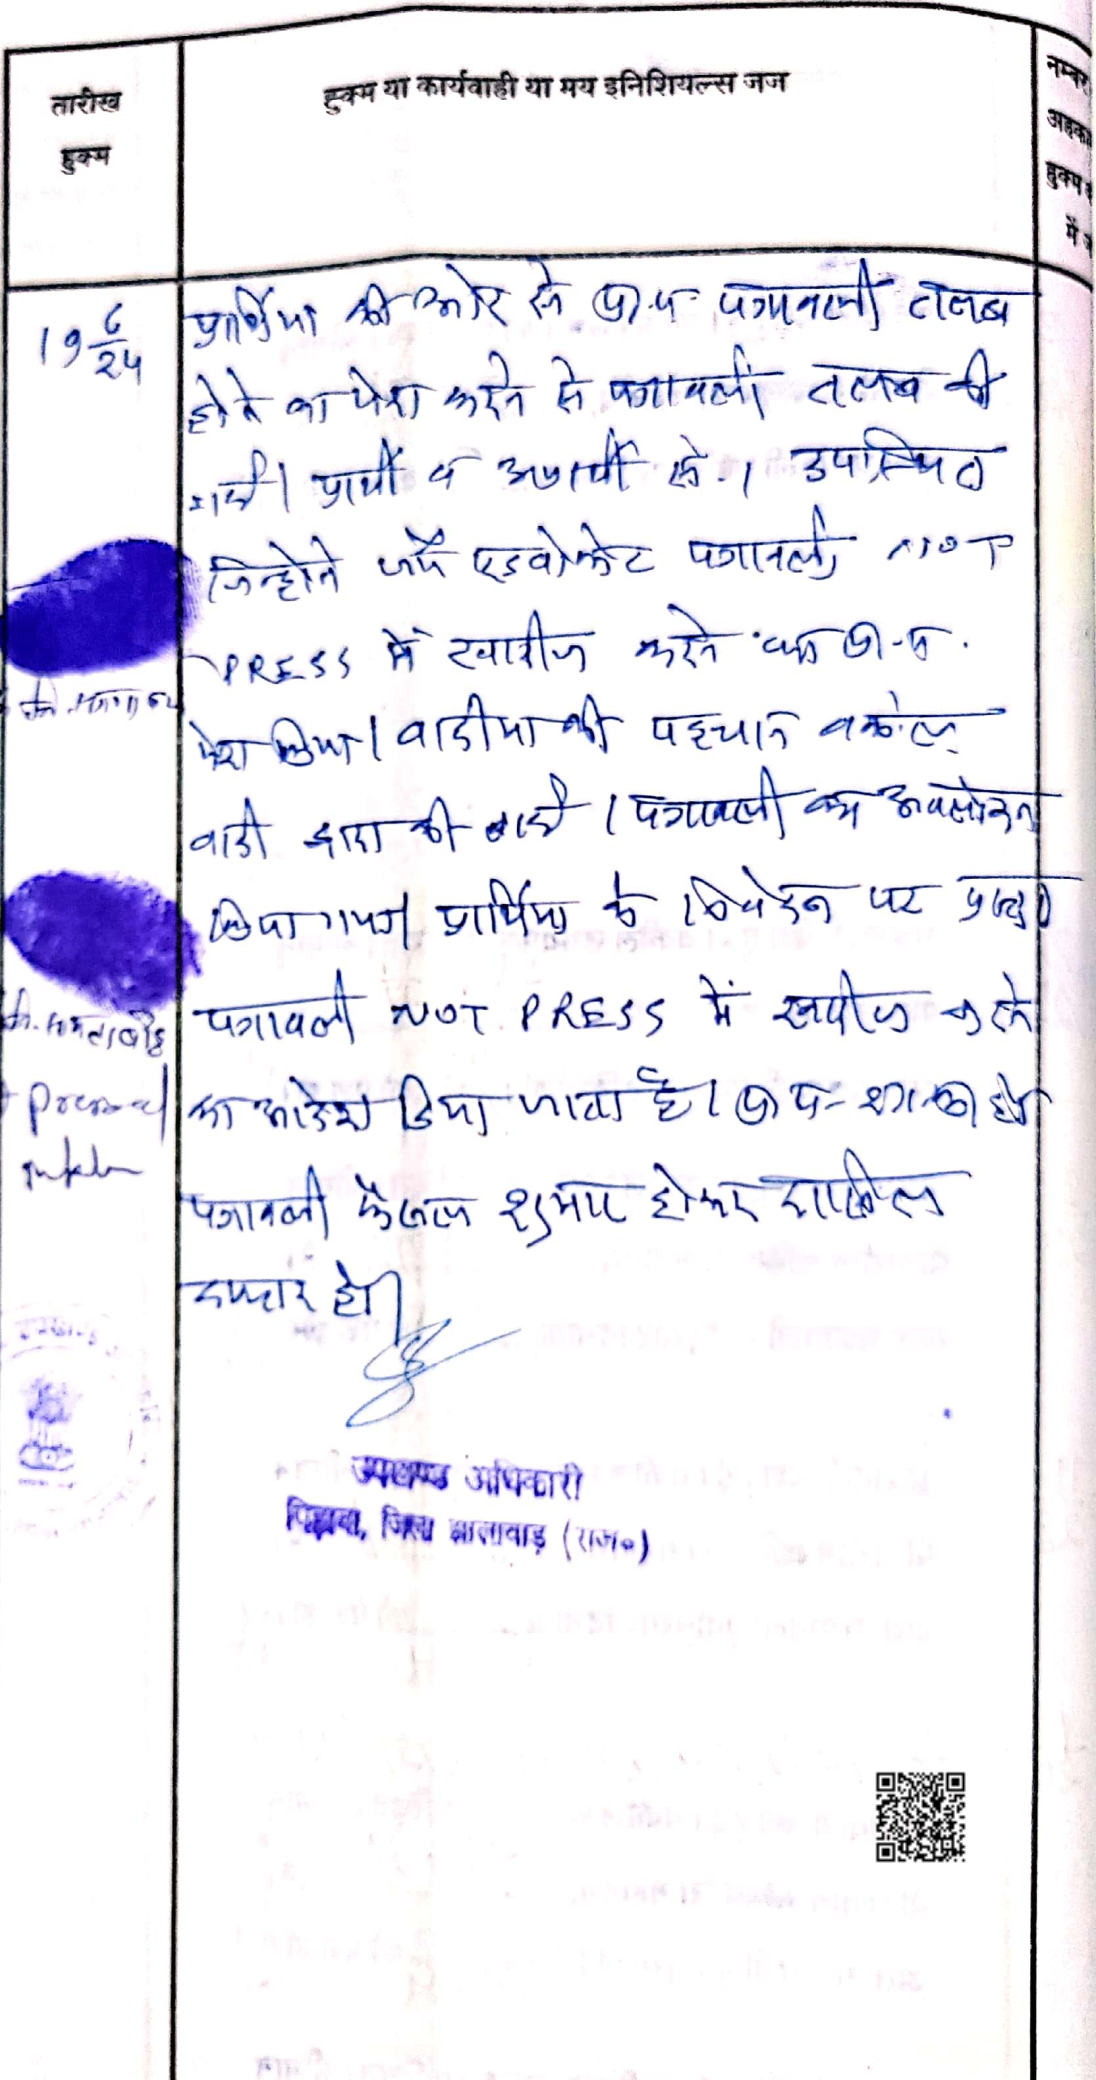 तारीख
हुक्म
हुक्म या कार्यवाही या मय इनिशियल्स जज
नम्बर
हुक्म
में
19 6/24
प्रार्थिया की ओर से प्रा.प. पत्रावली तलब
होने का पेश करने से पत्रावली तलब की
गयी। प्रार्थी व अप्रार्थी सं.1 उपस्थित
जिन्होने जर्ये एडवोकेट पत्रावली NOT
PRESS में खारीज करने का प्रा.प.
पेश किया। वादीया की पहचान वकील
वादी द्वारा की गयी। पत्रावली का अवलोकन
किया गया। प्रार्थिया के निवेदन पर प्रस्तुत
पत्रावली NOT PRESS में खारीज करने
का आदेश दिया जाता है। प्रा.प. हो
पत्रावली फैसल शुमार होकर दाखिल
दफ्तर हो।
उपखण्ड अधिकारी
पिड़ावा, जिला झालावाड़ (राज०)